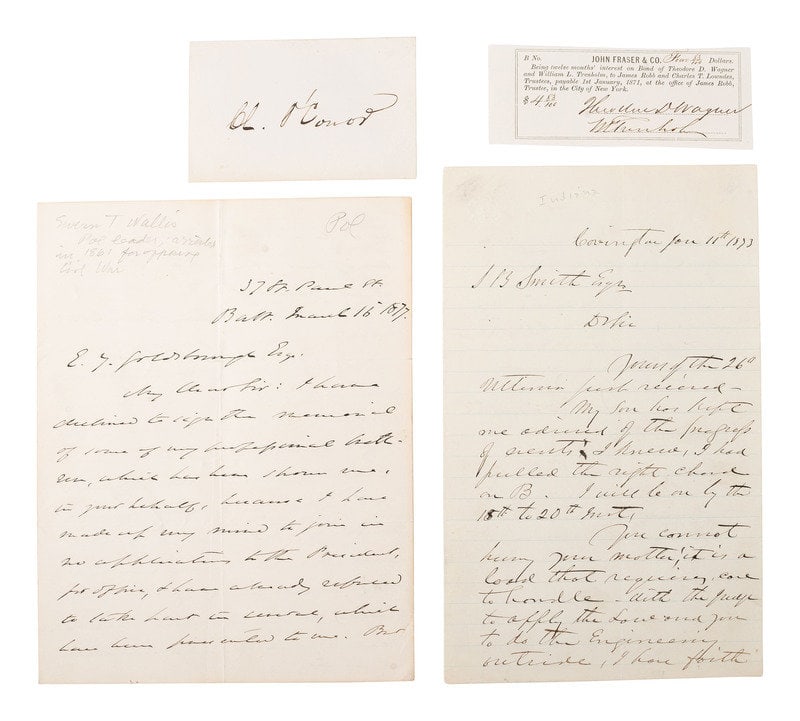 Ch. O'Conor
B No. JOHN FRASER & CO. Dollars.
Being twelve months' interest on Bond of Theodore D. Wagner
and William L. Trenholm, to James Robb and Charles T. Lowndes,
Trustees, payable 1st January, 1871, at the office of James Robb,
Trustee, in the City of New York.
$4
Theodore D Wagner
Wm Trenholm
Severn T. Wallis
Pol leader, arrested
in 1861 for opposing
Civil War
Pol
37 St. Paul St
Balt. March 16 1877.
E. Y. Goldsborough Esq.
My dear Sir: I have
declined to sign the memorial
of some of my professional breth-
ren, which has been shown me,
in your behalf, because I have
made up my mind to join in
no application to the President,
for office, & have already refused
to take part in several, which
have been presented to me. But
Indiana
Covington Jan 11th 1873
J B Smith Esqr
D Sir
Yours of the 26th
Ultimo just received —
My Son has kept
me advised of the progress
of events. I knew, I had
pulled the right chord
on B. I will be on by the
18th to 20th Inst,
You cannot
hurry your matter, it is a
load that requires care
to handle — with the Judge
to apply the Love and you
to do the Engineering
outside, I have faith